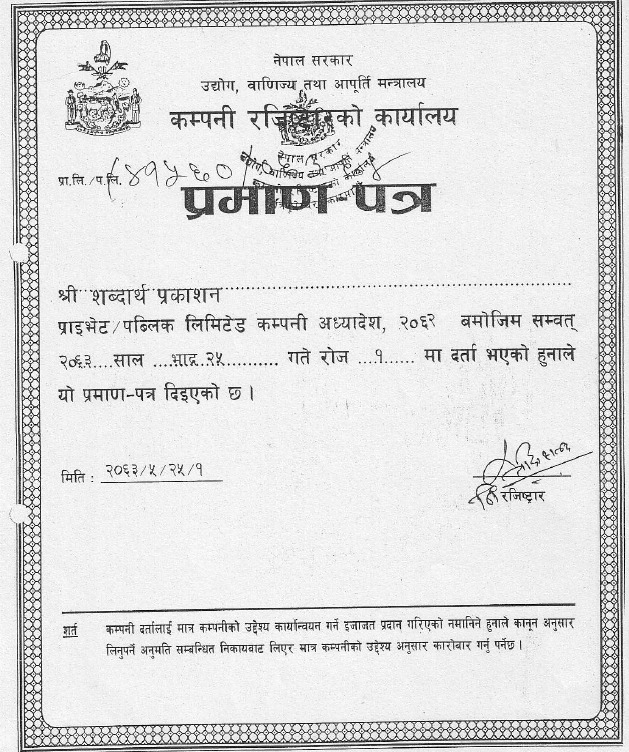 नेपाल सरकार
उद्योग, वाणिज्य तथा आपूर्ति मन्त्रालय
कम्पनी रजिष्ट्रारको कार्यालय
नेपाल सरकार
उद्योग, वाणिज्य तथा आपूर्ति मन्त्रालय
प्रा.लि./प.लि. ४१५६०/
प्रमाण पत्र
श्री शब्दार्थ प्रकाशन
प्राइभेट/पब्लिक लिमिटेड कम्पनी अध्यादेश, २०६२ बमोजिम सम्वत्
२०६३....साल ....भाद्र २५........... गते रोज ...१...... मा दर्ता भएको हुनाले
यो प्रमाण-पत्र दिइएको छ ।
मिति : २०६३/५/२५/१
रजिष्ट्रार
शर्त कम्पनी दर्तालाई मात्र कम्पनीको उद्देश्य कार्यान्वयन गर्न इजाजत प्रदान गरिएको नमानिने हुनाले कानून अनुसार
लिनुपर्ने अनुमति सम्बन्धित निकायबाट लिएर मात्र कम्पनीको उद्देश्य अनुसार कारोबार गर्नु पर्नेछ ।